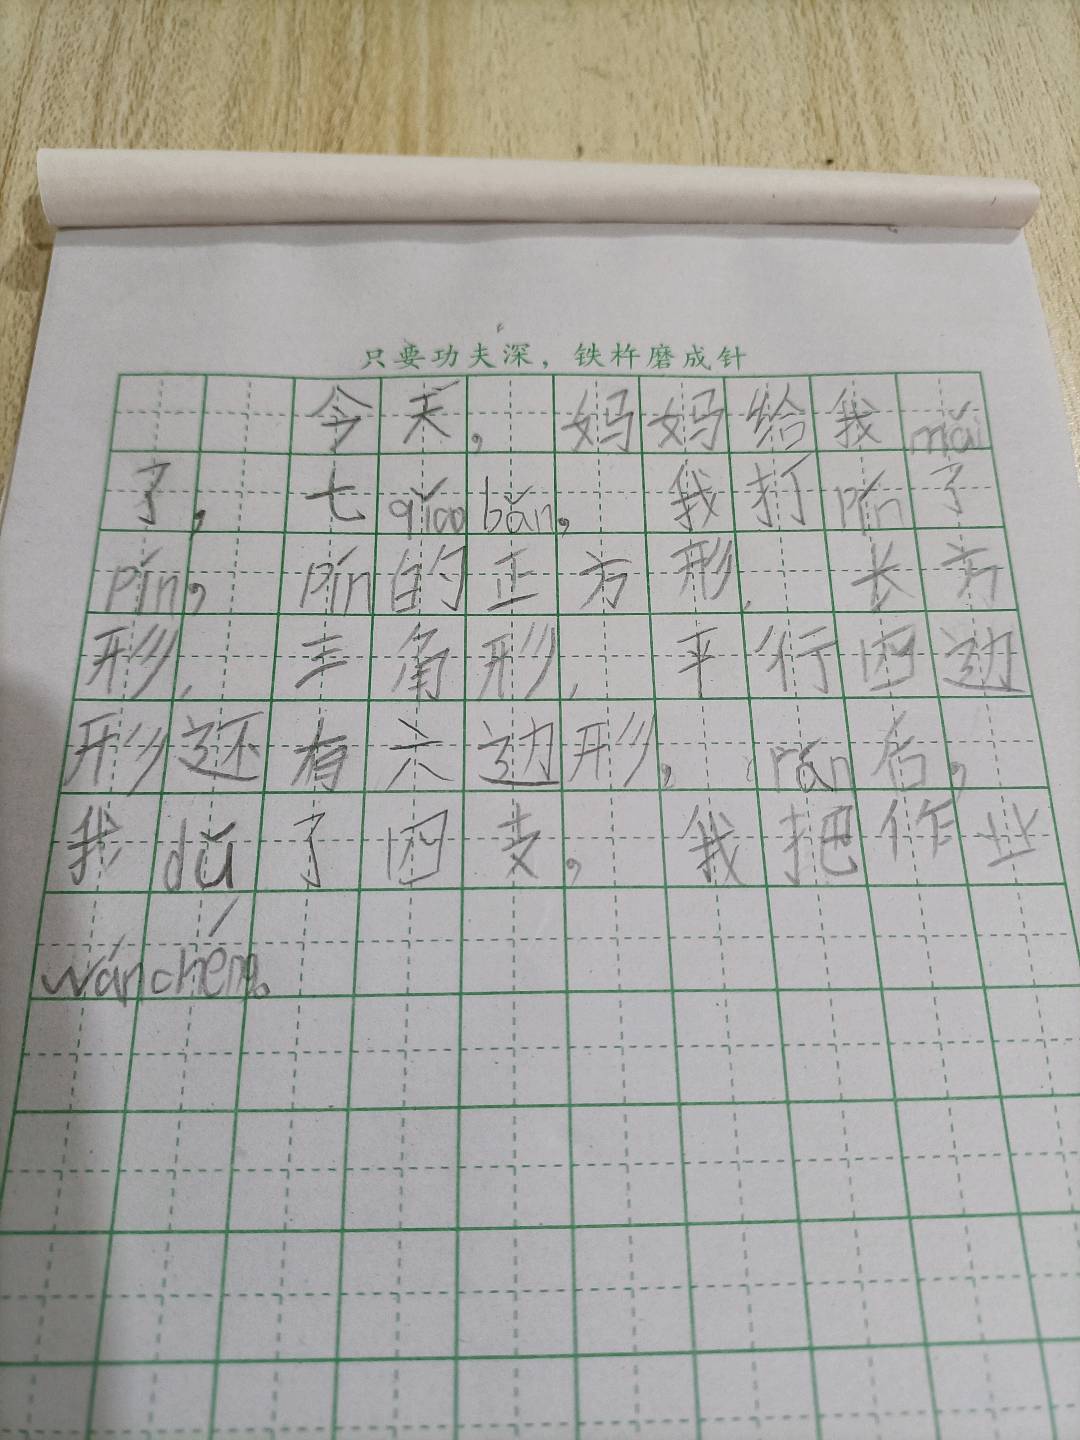 只要功夫深，铁杵磨成针
今天，妈妈给我mǎi
了，七qiǎobǎn，我打pín了
pín，pín的正方形、长方
形、三角形、平行四边
形还有六边形。rán后，
我dǔ了四支，我把作业
wánchéng。